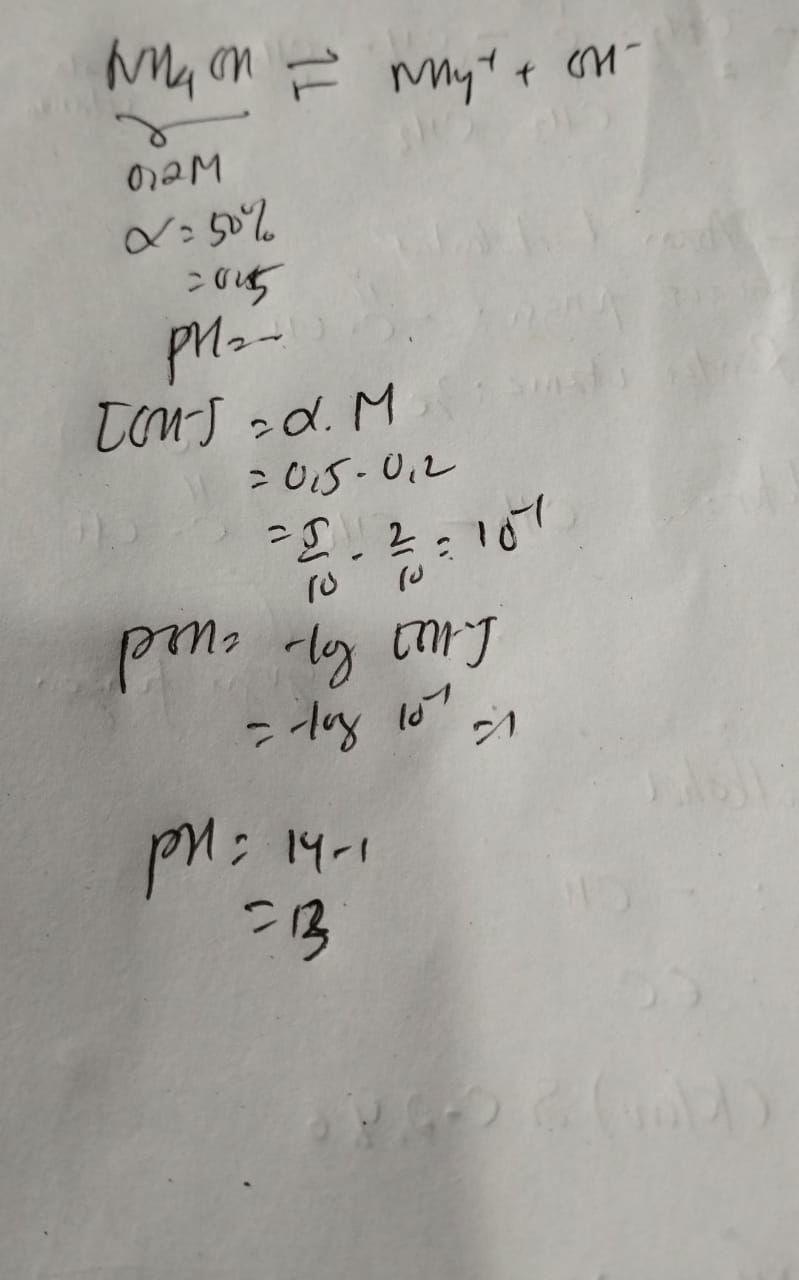 NH4OH ⇌ NH4⁺ + OH⁻
0,2M
α = 50%
= 0,5
pH = -
[OH-] = α. M
= 0,5 - 0,2
= 5/10 . 2/10 = 10⁻¹
pOH = -log [OH-]
= -log 10⁻¹ = 1
pH = 14-1
= 13